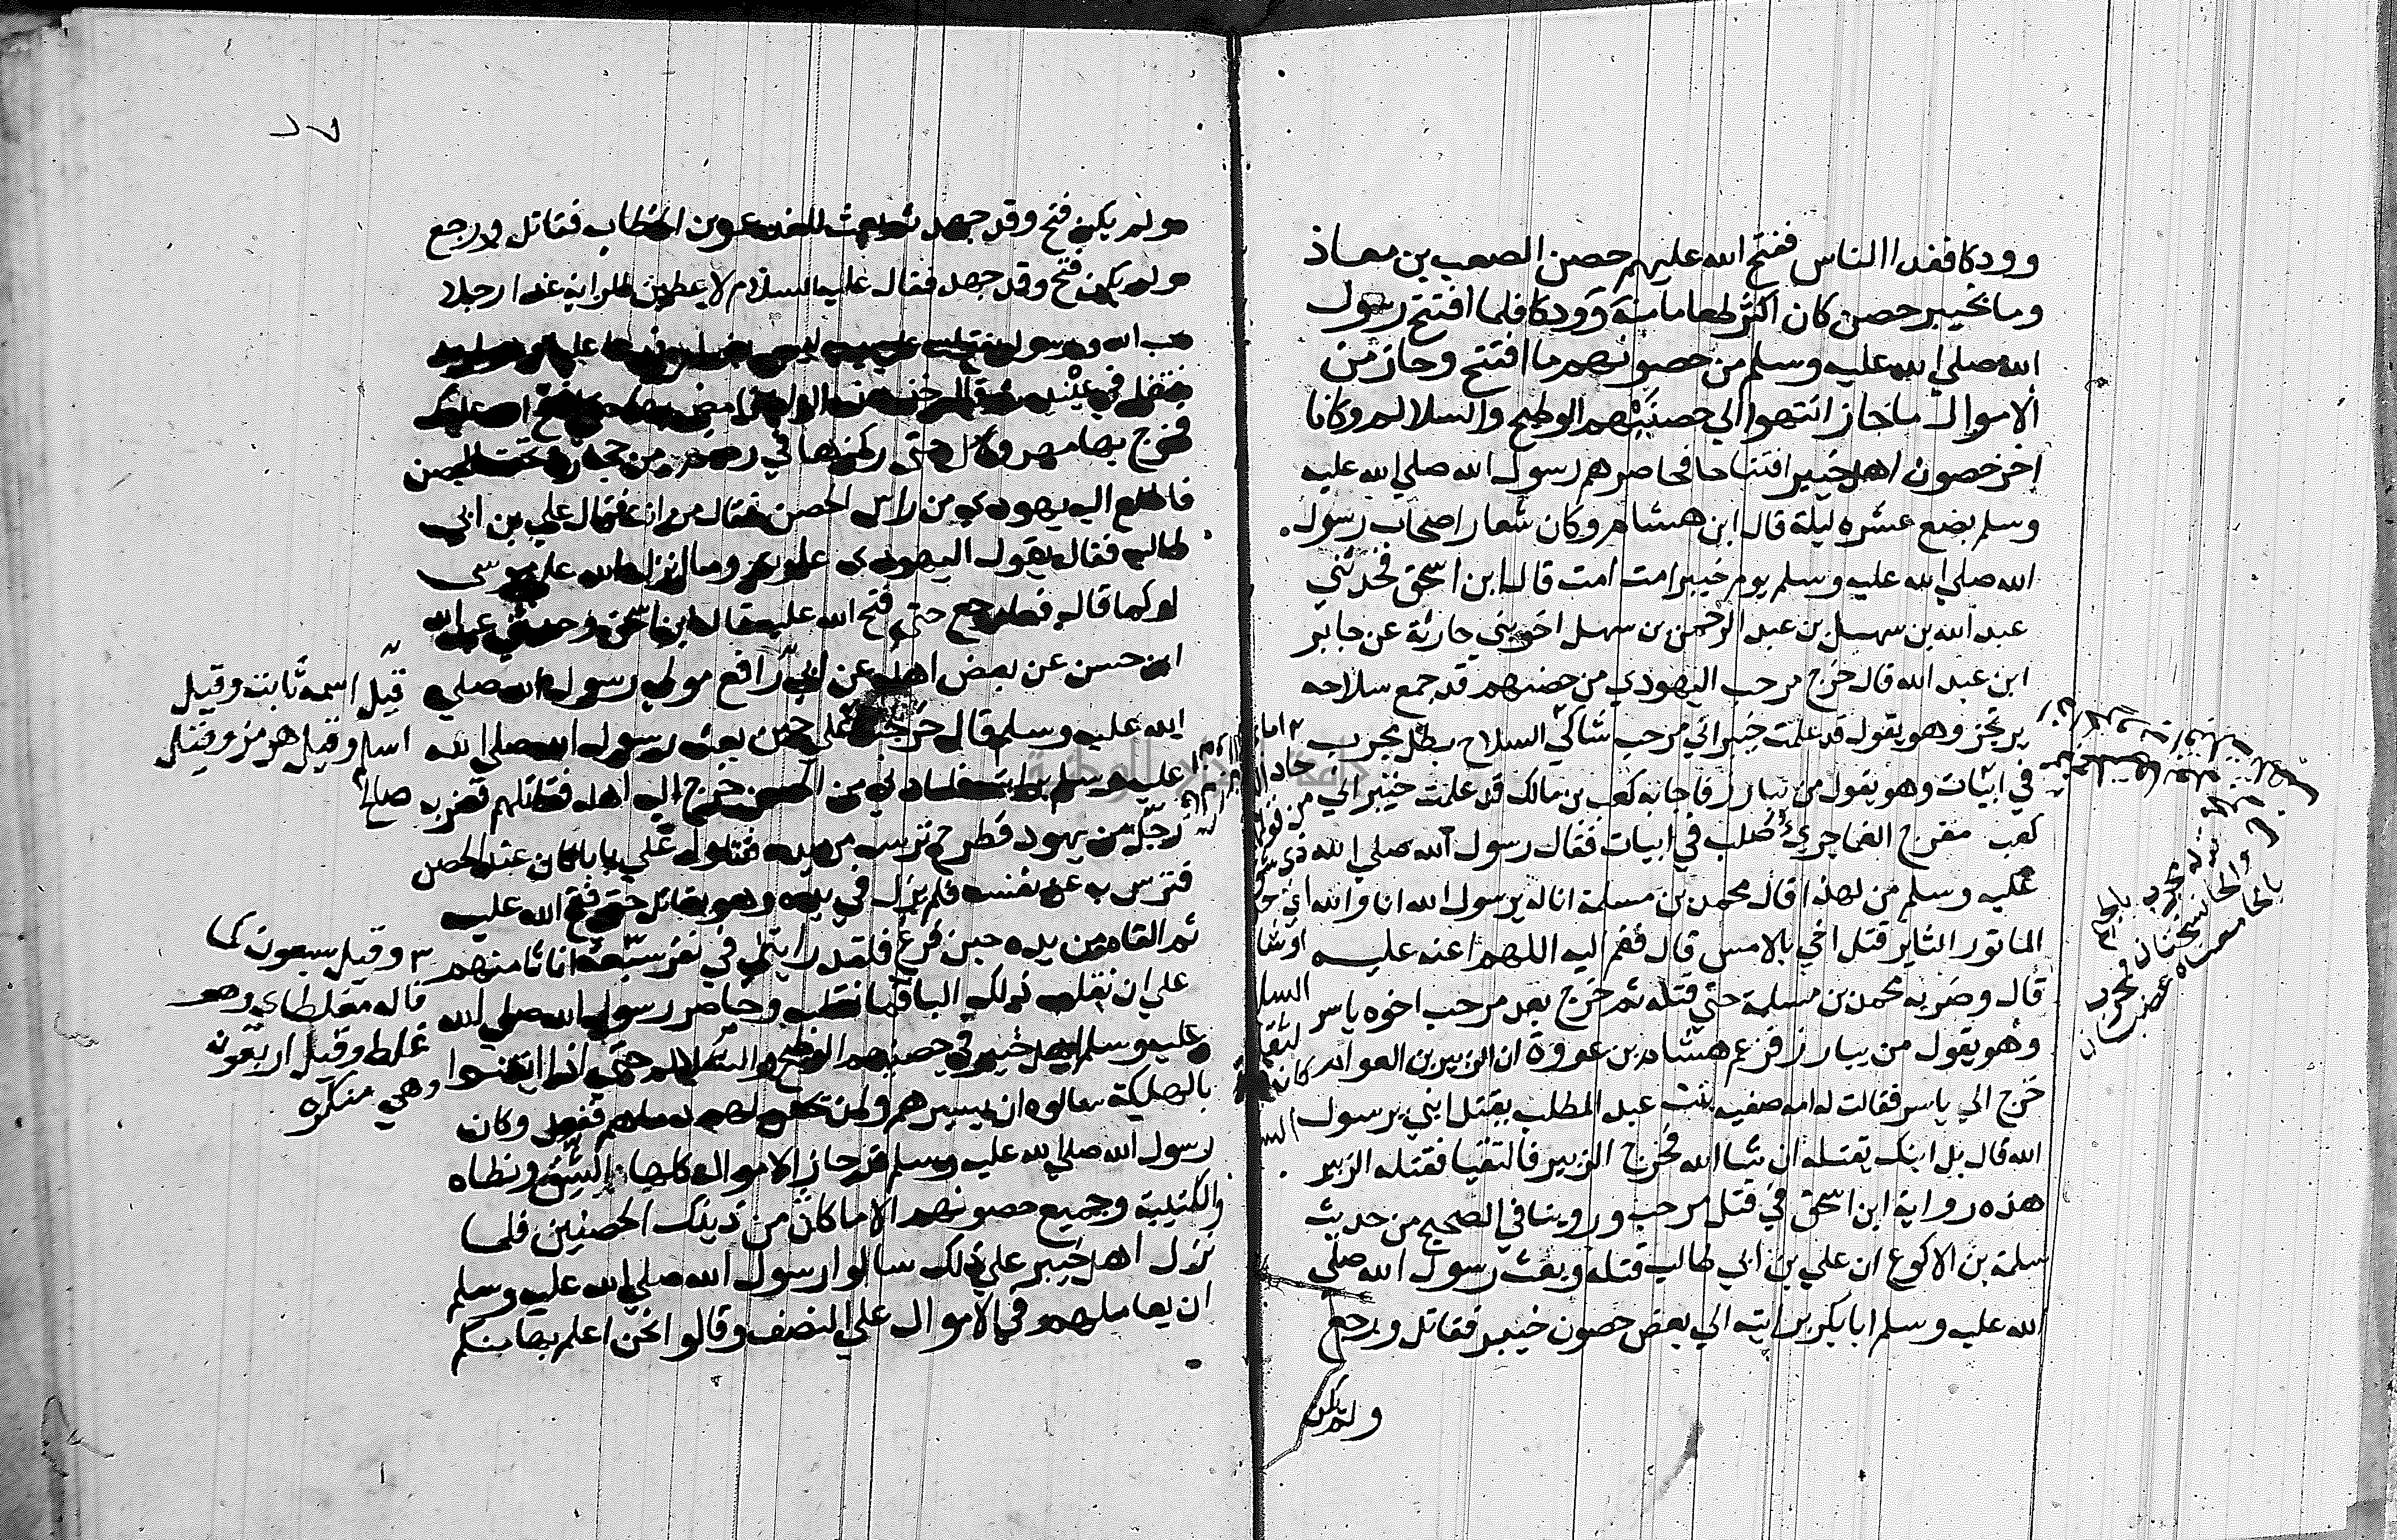 وودكا فغدا الناس ففتح الله عليهم حصن الصعب بن معاذ
وما بخيبر حصن كان اكثر طعاما منه وودكا فلما افتتح رسول
الله صلي الله عليه وسلم من حصونهم ما افتتح وحاز من
الاموال ما حاز انتهوا الي حصنيهم الوطيح والسلالم وكانا
اخر حصون اهل خيبر افتتاحا فحاصرهم رسول الله صلي الله عليه
وسلم بضع عشره ليلة قال ابن هشام وكان شعار اصحاب رسول
الله صلي الله عليه وسلم يوم خيبر امت امت قال ابن اسحق فحدثني
عبد الله بن سهل بن عبد الرحمن بن سهل اخو بني حارثة عن جابر
ابن عبد الله قال خرج مرحب اليهودي من حصنهم قد جمع سلاحه
يرتجز وهو يقول قد علمت خيبر اني مرحب شاكي السلاح بطل مجرب
في ابيات وهو يقول من يبارز فاجابه كعب بن مالك قد علمت خيبر اني
كعب مفرج الغما جري صلب في ابيات فقال رسول الله صلي الله
عليه وسلم من لهذا قال محمد بن مسلمة انا له يرسول الله انا والله
الماتور الثاير قتل اخي بالامس قال فقم اليه اللهم اعنه عليه
قال وضربه محمد بن مسلمة حتي قتله ثم خرج بعد مرحب اخوه ياسر
وهو يقول من يبارز فزعم هشام بن عروة ان الزبير بن العوام
خرج الي ياسر فقالت له امه صفيه بنت عبد المطلب يقتل ابني يرسول
الله قال بل ابنك يقتله ان شا الله فخرج الزبير فالتقيا فقتله الزبير
هذه رواية ابن اسحق في قتل مرحب وروينا في الصحيح من حديث
سلمة بن الاكوع ان علي بن ابي طالب قتله وبعث رسول الله صلي
الله عليه وسلم ابا بكر برايته الي بعض حصون خيبر فقاتل ورجع
ولم يكن
ولم يكن فتح وقد جهد ثم بعث للغد عمر بن الخطاب فقاتل ورجع
ولم يكن فتح وقد جهد فقال عليه السلام لاعطين الراية غدا رجلا
يحب الله ورسوله
فتفل في عينيه ثم قال خذ هذه الراية امض بها حتي يفتح الله عليك
فخرج بها يهرول حتي ركزها في رضم من حجارة تحت الحصن
فاطلع اليه يهودي من راس الحصن فقال من انت فقال علي بن ابي
طالب فقال يقول اليهودي علوتم وما انزل الله علي موسى
او كما قال فما رجع حتي فتح الله عليه قال ابن اسحق وحدثني عبد الله
ابن حسن عن بعض اهله عن ابي رافع مولي رسول الله صلي
الله عليه وسلم قال خرجنا مع علي حين بعثه رسول الله صلي الله
عليه وسلم برايته فلما دنى من الحصن خرج اليه اهله فقاتلهم فضربه
رجل من يهود فطرح ترسه من يده فتناول علي بابا كان عند الحصن
فترس به عن نفسه فلم يزل في يده وهو يقاتل حتي فتح الله عليه
ثم القاه من يده حين فرغ فلقد رايتني في نفر سبعة انا ثامنهم
علي ان نقلب ذلك الباب فما نقلبه وحاصر رسول الله صلي الله
عليه وسلم اهل خيبر في حصنيهم الوطيح والسلالم حتي اذا ايقنوا
بالهلكة سالوه ان يسيرهم وان يحقن لهم دماهم ففعل وكان
رسول الله صلي الله عليه وسلم قد حاز الاموال كلها الشق ونطاه
والكتيبة وجميع حصونهم الا ما كان من ذينك الحصنين فلما
نزل اهل خيبر علي ذلك سالوا رسول الله صلي الله عليه وسلم
ان يعاملهم في الاموال علي النصف وقالوا نحن اعلم بها منكم
قيل اسمه ثابت وقيل
اسلم وقيل هرمز وقيل
صالح
وقيل سبعون كما
قاله مغلطاي وهو
غلط وقيل اربعون
وهي منكره